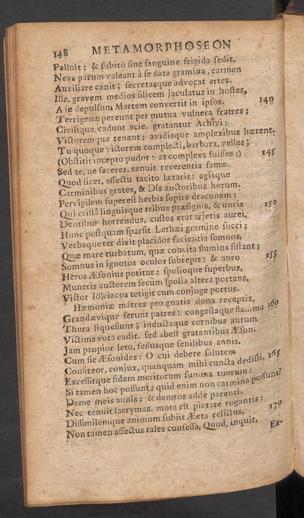 148 METAMORPHOSEON
Palluit; & subitò sine sanguine frigida sedit.
Neve parum valeant à se data gramina, carmen
Auxiliare canit; secretasque advocat artes.
Ille, gravem medios silicem jaculatus in hostes,
A se depulsum Martem convertit in ipsos. 140
Terrigenæ pereunt per mutua vulnera fratres;
Civilique cadunt acie. gratantur Achivi:
Victoremque tenent; avidisque amplexibus hærent.
Tu quoque victorem complecti, barbara, velles;
(Obstitit incepto pudor: at complexa fuisses;) 145
Sed te, ne faceres, tenuit reverentia famæ.
Quod licet, affectu tacito lætaris: agisque
Carminibus grates, & Dîs auctoribus horum.
Pervigilem superest herbis sopire draconem:
Qui cristâ linguisque tribus præsignis, & uncis 150
Dentibus horrendus, custos erat arietis aurei,
Hunc postquam sparsit Lethæi gramine succi;
Verbaque ter dixit placidos facientia somnos,
Quæ mare turbatum, quæ concita flumina sistant;
Somnus in ignotos oculos subrepit: & auro 155
Heros Æsonius potitur: spolioque superbus,
Muneris auctorem secum spolia altera portans,
Victor Iolciacos tetigit cum conjuge portus.
Hæmoniæ matres pro gnatis dona receptis,
Grandævique ferunt patres: congestaque flamma 160
Thura liquefiunt; inductaque cornibus aurum
Victima vota cadit. sed abest gratantibus Æson,
Jam propior leto, fessusque senilibus annis.
Cum sic Æsonides: O cui debere salutem
Confiteor, conjux, quanquam mihi cuncta dedisti, 165
Excessitque fidem meritorum summa tuorum:
Si tamen hoc possunt; quid enim non carmina possunt?
Deme meis annis: & demtos adde parenti.
Nec tenuit lacrymas. mota est pietate rogantis:
Dissimilemque animum subiit Æeta relictus, 170
Non tamen affectus tales confessa, Quod, inquit,
Ex-